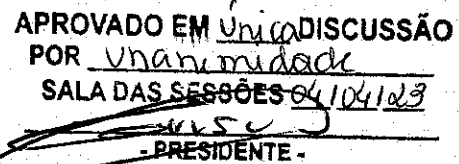 APROVADO EM Única DISCUSSÃO
POR Unanimidade
SALA DAS SESSÕES 04/04/23
- PRESIDENTE -